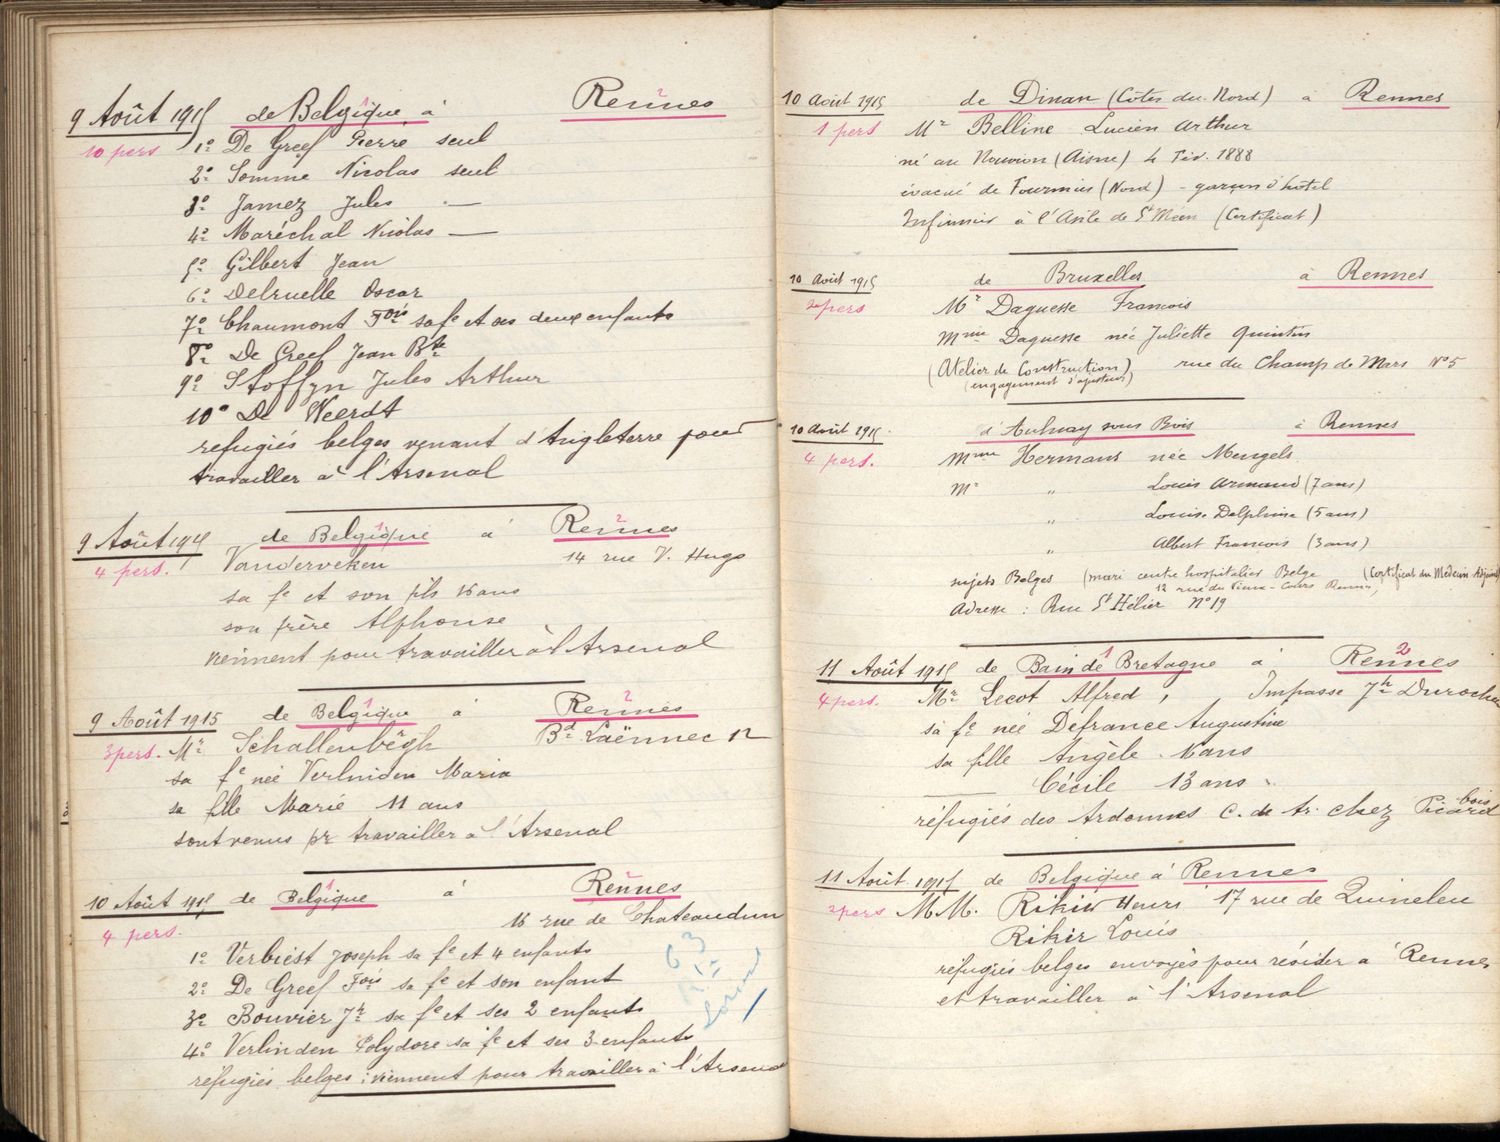 9 Août 1915 de Belgique à Rennes
10 pers 1º De Greef Pierre seul
2º Somme Nicolas seul
3º Jamez Jules —
4º Maréchal Nicolas —
5º Gilbert Jean
6º Delruelle Oscar
7º Chaumont Fois sa fe et ses deux enfants
8º De Greef Jean Bte
9º Stoffyn Jules Arthur
10º De Weerdt
refugiés belges venant d'Angleterre pour
travailler à l'Arsenal
9 Août 1915 de Belgique à Rennes
4 pers. Vanderveken 14 rue V. Hugo
sa fe et son fils 16 ans
son frère Alphonse
viennent pour travailler à l'Arsenal
9 Août 1915 de Belgique à Rennes
3 pers. Mr Schallenbergh Bd Laënnec 12
sa fe née Verlinden Maria
sa fille Marie 11 ans
sont venus pr travailler à l'Arsenal
10 Août 1915 de Belgique à Rennes
4 pers. 16 rue de Chateaudun
1º Verbiest Joseph sa fe et 4 enfants
2º De Greef Fois sa fe et son enfant
3º Bouvier Jh sa fe et ses 2 enfants
4º Verlinden Polydore sa fe et ses 3 enfants
réfugiés belges : viennent pour travailler à l'Arsenal
10 Août 1915 de Dinan (Côtes du Nord) à Rennes
1 pers Mr Belline Lucien Arthur
né au Nouvion (Aisne) 4 Fév. 1888
évacué de Fourmies (Nord) - garçon d'hôtel
Infirmier à l'Asile de St Méen (Certificat)
10 Août 1915 de Bruxelles à Rennes
2 pers Mr Daquesse Francois
Mme Daquesse née Juliette Quintin
(Atelier de Construction) rue du Champ de Mars Nº 5
(engagement d'ajusteur)
10 Août 1915 d'Aulnay sous Bois à Rennes
4 pers. Mme Hermans née Mengels
Mr " Louis Armand (7 ans)
" Louise Delphine (5 ans)
" Albert Francois (3 ans)
sujets Belges (mari centre hospitalier Belge (Certificat du Médecin Adjoint)
12 rue du Vieux-Cours Rennes)
Adresse : Rue St Hélier Nº 19
11 Août 1915 de Bain de Bretagne à Rennes
4 pers. Mr Lecot Alfred, Impasse Jh Durocher
sa fe née Defrance Augustine
sa fille Angèle 16 ans
— Cécile 13 ans
réfugiés des Ardennes C. de tr. chez Picard bois
11 Août 1915 de Belgique à Rennes
2 pers MM. Rikir Henri 17 rue de Quineleu
Rikir Louis
réfugiés belges envoyés pour résider à Rennes
et travailler à l'Arsenal